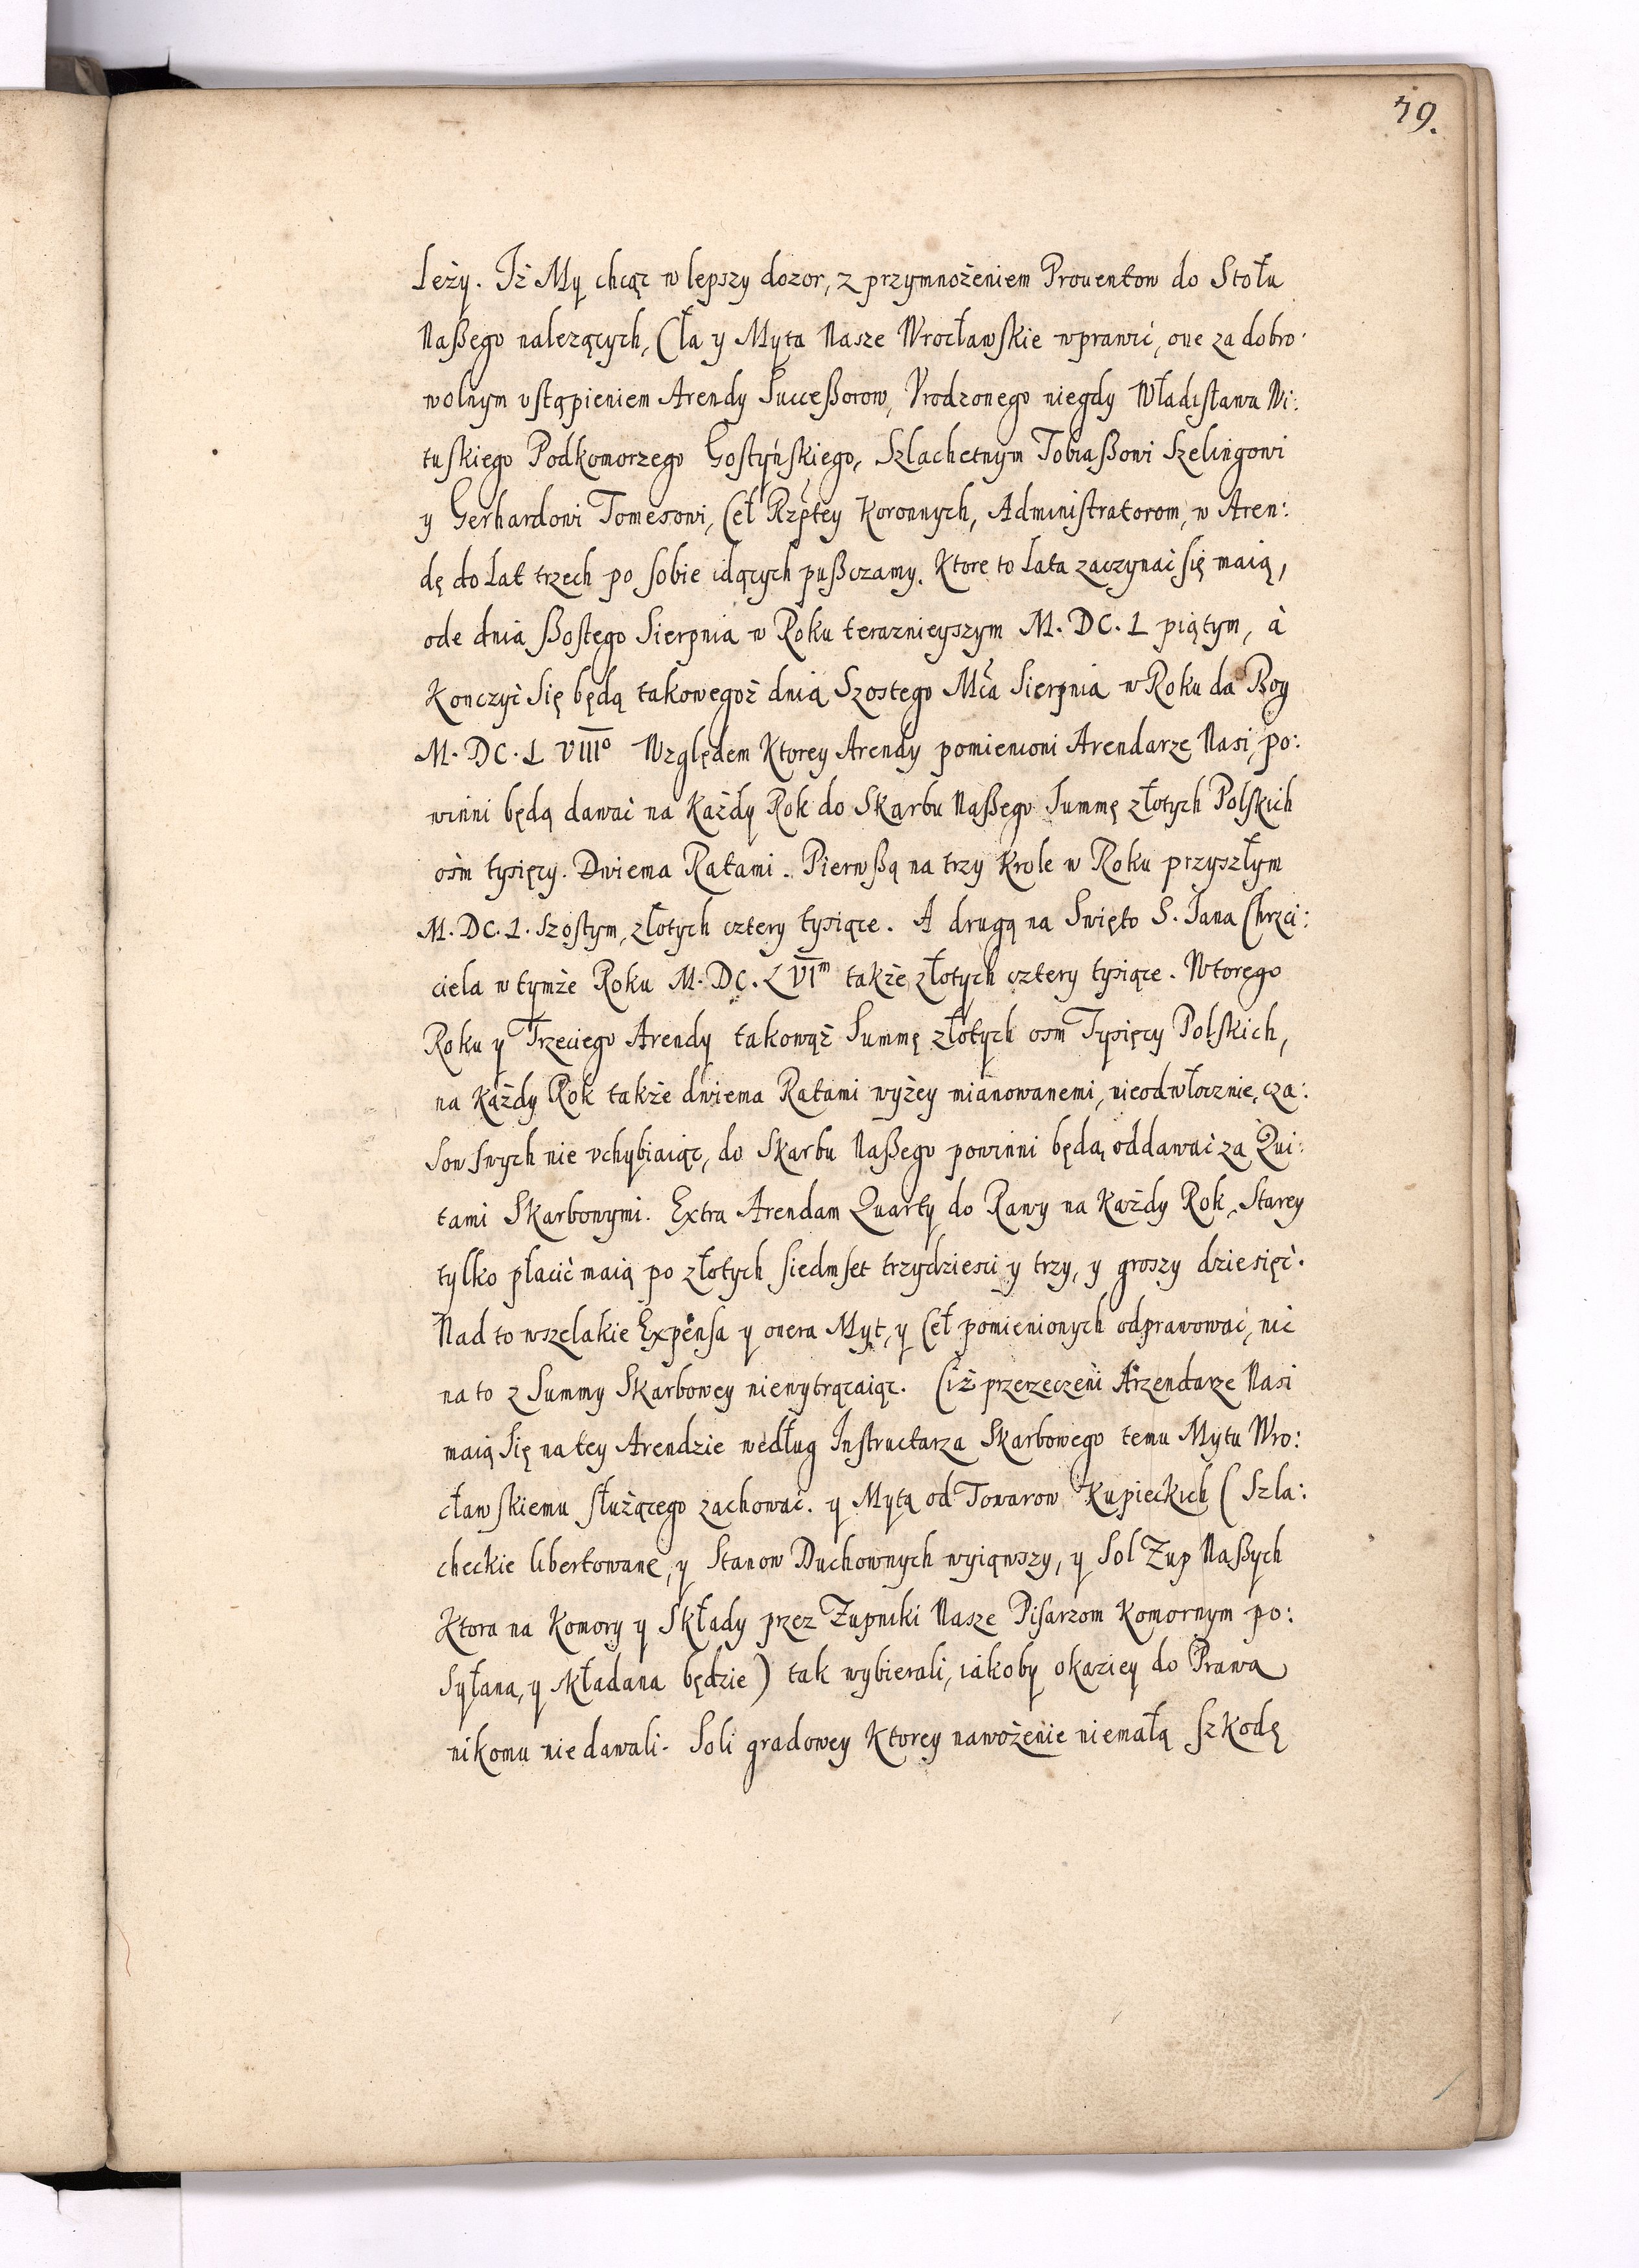 79.
leży. Jż My chcąc w lepszy dozor, z przymnożeniem Prouentow do Stołu
Naßego należących, Cła y Myta Nasze Wrocławskie wprawić, one za dobro:
wolnym vstąpieniem Arendy Succeßorow, Vrodzonego niegdy Władisława Wi:
tuskiego Podkomorzego Gostyńskiego, Szlachetnym Tobiaßowi Szelingowi
y Gerhardowi Tomesowi, Ceł Rzptey Koronnych, Administratorom, w Aren:
dę do Lat trzech po sobie idących pußczamy. Ktore to Lata zaczynać się maią,
ode dnia ßostego Sierpnia w Roku teraznieyszym M. DC. L piątym, à
Konczyć się będą takowegoż dnia Szostego Mca Sierpnia w Roku da Bog
M. DC. L VIIIo Względem Ktorey Arendy pomienioni Arendarze Nasi, po:
winni będą dawać na Każdy Rok do Skarbu Naßego Summę złotych Polskich
ośm tysięcy. Dwiema Ratami. Pierwßą na trzy Krole w Roku przyszłym
M. DC. L. szostym, złotych cztery tysiące. A drugą na Swięto S. Jana Chrzci:
ciela w tymże Roku M. DC. L VIm także złotych cztery tysiące. Wtorego
Roku y Trzeciego Arendy takowąż Summę złotych osm Tysięcy Polskich,
na Każdy Rok także dwiema Ratami wyżey mianowanemi, nieodwłocznie, cza:
sow swych nie vchybiaiąc, do Skarbu Naßego powinni będą oddawać za Qui:
tami Skarbowymi. Extra Arendam Quarty do Rawy na Każdy Rok, Starey
tylko płacić maią po złotych siedmset trzydziesci y trzy, y groszy dziesięć.
Nad to wszelakie Expensa y onera Myt, y Ceł pomienionych odprawować, nic
na to z Summy Skarbowey niewytrącaiąc. Ciż przerzeczeni Arzendarze Nasi
maią się na tey Arendzie według Instructarza Skarbowego temu Mytu Wro:
cławskiemu służącego zachować. y Myta od Towarow Kupieckich (Szla:
checkie libertowane, y Stanow Duchownych wyiąwszy, y Sol Zup Naßych
Ktora na Komory y Składy przez Zupniki Nasze Pisarzom Komornym po:
syłana, y składana będzie) tak wybierali, iakoby okaziey do Prawa
nikomu nie dawali. Soli gradowey Ktorey nawożenie niemałą szkodę